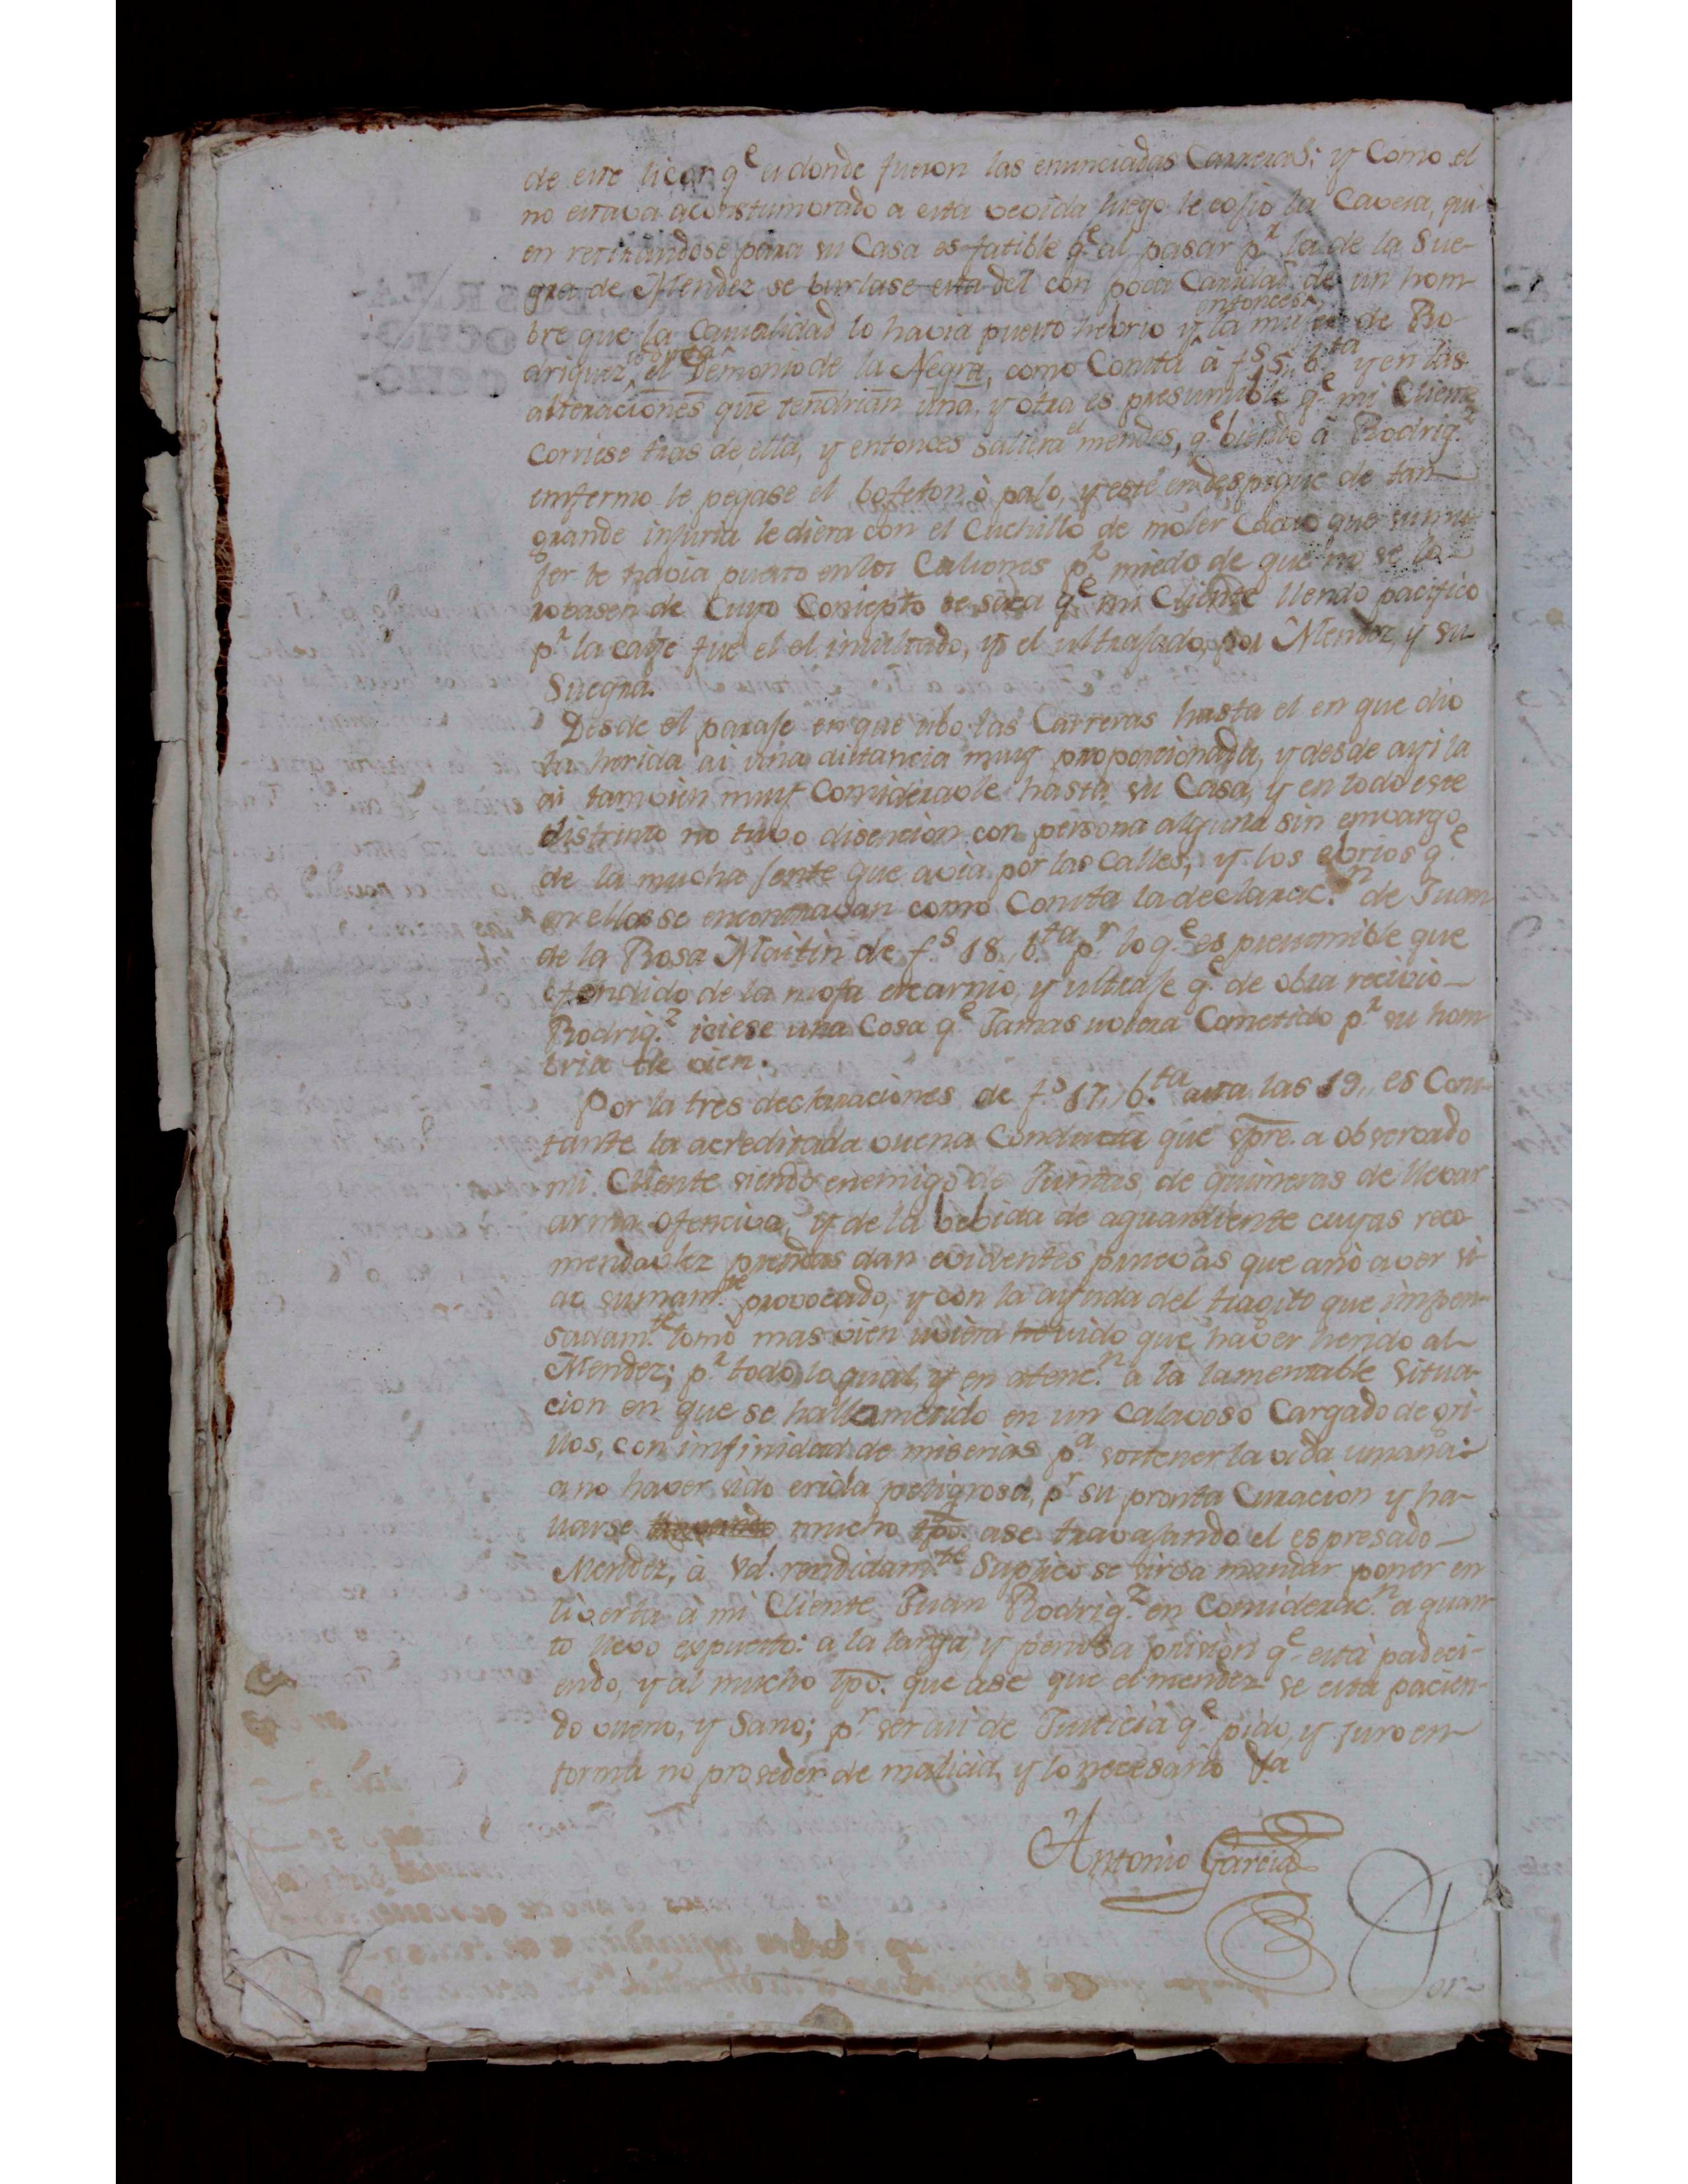 de este licor q.e a donde fueron las enunciadas Carreras; y Como el
no estava aconstumbrado a esta vevida luego le cojio la Caveza, qui
en retirandose para su Casa es fatible q.e al pasar p.r la de la Sue-
gra de Mendez se burlase esta del con poca Caridad de un hom
bre que la Casualidad lo havia puesto hebrio y entonces la mujer de Ro
driguez el Demonio de la Negra, como Consta à f.s 5,, b.ta y en las
alteraciones que tendrian una, y otra es presumible q.e mi Cliente
Corriese tras de ella, y entonces saliera el mendes, q.e biendo à Rodrig.z
emfermo le pegase el bofeton ò palo, y este en despique de tan
grande injuria le diera con el Cuchillo de moler Cacao que su mu-
jer le havia puesto en los Calsones p.r miedo de que no se lo
robasen de Cuyo Consepto se saca q.e mi Cliente llendo pacifico
p.r la caye fue el el insultado, y el ultrajado, por Mendez, y su
Suegra.
Desde el paraje en que ubo las Carreras hasta el en que dio
la herida ai una distancia muy proporcionada, y desde ayi la
ai tambien muy Considerable hasta su Casa, y en todo este
distrinto no tubo disencion con persona alguna sin envargo
de la mucha jente que avia por las Calles, y los ebrios q.e
en ellas se encontravan como Consta la declarac.n de Juan
de la Rosa Martin de f.s 18,, b.ta p.r lo q.e es presumible que
ofendido de la mofa escarnio, y ultraje q.e de obra recivio
Rodrig.z iciese una Cosa q.e Jamas uviera Cometido p.r su hom
bria de vien.
Por la tres declaraciones de f.s 17,, b.ta asta las 19,, es Cons-
tante la acreditada buena Conducta que spre. a observado
mi Cliente siendo enemigo de Juntas, de quimeras de llevar
arma ofenciva, y de la bebida de aguardiente cuyas reco-
mendavlez prendas dan evidentes pruevas que a nò aver si-
do sumam.te provocado, y con la ayuda del tragito que impen-
sadam.te tomò mas vien uviera huido que haver herido al
Mendez; p.r todo lo qual, y en atenc.n a la lamentable situa-
cion en que se halla metido en un Calavoso Cargado de gri-
llos, con imfinidad de miserias p.a sostener la vida umana:
a no haver sido erida peligrosa, p.r su pronta Curacion y ha-
llarse mucho tpo. ase travajando el espresado
Mendez, à Vd. rendidam.te Suplico se sirva mandar poner en
liverta à mi Cliente Juan Rodrig.z en Considerac.n a quan
to llevo expuesto: a la larga y penosa prision q.e està padeci-
endo, y al mucho tpo. que ase que el mendez se esta pacien-
do bueno, y Sano; p.r ser asi de Justicia q.e pido, y juro en
forma no proseder de malicia, y lo necesario V.a
Antonio Garcia
Por-